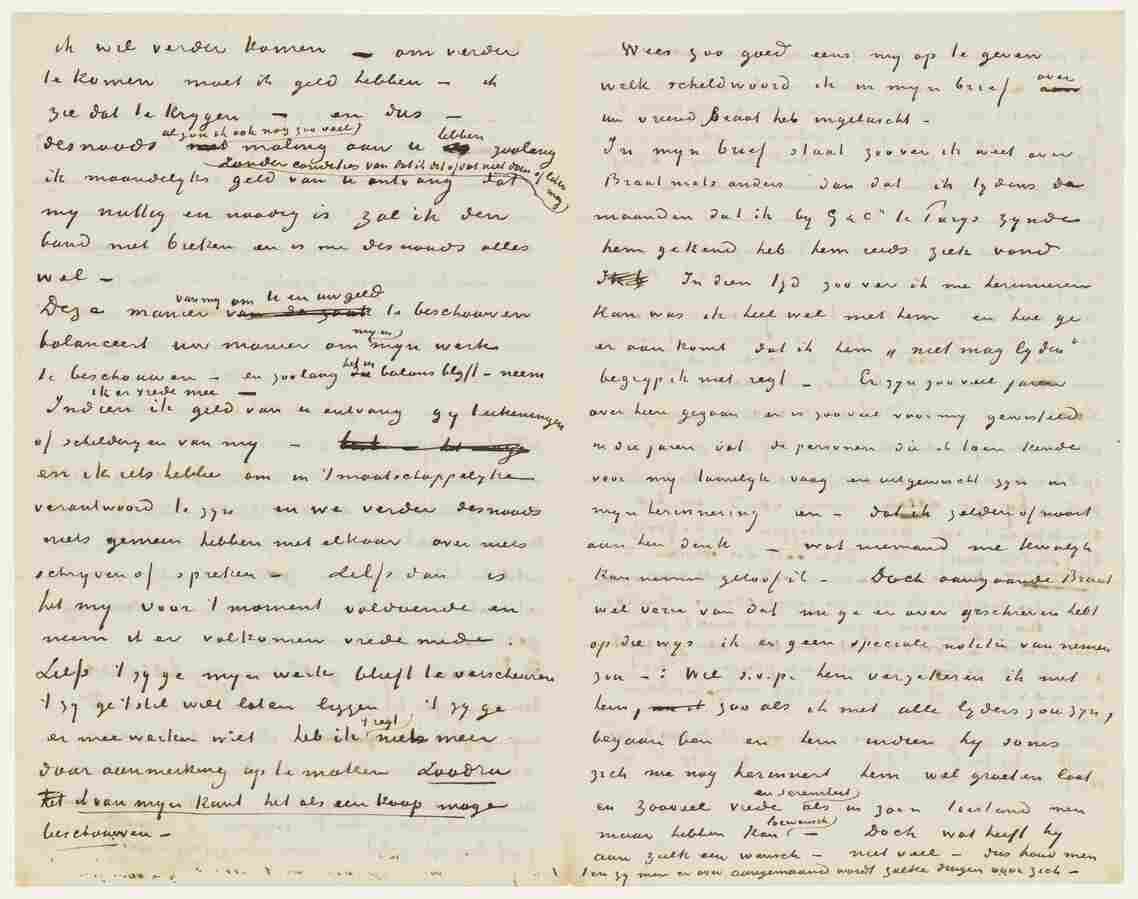 ik wil verder komen – om verder
te komen moet ik geld hebben – ik
zie dat te krygen – en dus –
al zou ik ook nog zoo veel
desnoods maling aan u hebben zoolang
zonder condities van dat ik dit of dat niet doen of laten mag
ik maandelyks geld van u ontvang dat
my nuttig en noodig is zal ik den
band niet breken en is me desnoods alles
wel –
van my om U en uw geld
Deze manier van de zaak te beschouwen
myn
balanceert uw manier om myn werk
te beschouwen – en zoolang het in balans blyft – neem
ik er vrede mee –
Indien ik geld van u ontvang gy teekeningen
of schilderyen van my –
en ik iets hebbe om in 't maatschappelyke
verantwoord te zyn en we verder desnoods
niets gemeen hebben met elkaar over niets
schryven of spreken – Zelfs dan is
het my voor 't moment voldoende en
neem ik er volkomen vrede mede.
Zelfs 't zy ge myn werk blieft te verscheuren
't zy ge 't stil wilt laten liggen 't zy ge
er mee werken wilt heb ik 't regt niet meer
daar aanmerking op te maken zoodra
ik van myn kant het als een koop moge
beschouwen –
Wees zoo goed eens my op te geven
welk scheldwoord ik in myn brief over
uw vriend Braat heb ingelascht –
In myn brief staat zoover ik weet over
Braat niets anders dan dat ik tydens de
maanden dat ik by G & Cie te Parys zynde
hem gekend heb hem reeds ziek vond
In dien tyd zoo ver ik me herinneren
kan was ik heel wel met hem en hoe ge
er aan komt dat ik hem „niet mag lyden"
begryp ik niet regt – Er zyn zoo veel jaren
over heen gegaan er is zoo veel voor my gewisseld
in die jaren dat de personen die ik toen kende
voor my tamelyk vaag en uitgewischt zyn in
myn herinnering en – dat ik zelden of nooit
aan hen denk – wat niemand me kwalyk
kan nemen geloof ik – Doch aangaande Braat
wel verre van dat nu ge er over geschreven hebt
op die wys ik er geen speciale notitie van nemen
zou –: Wil s.v.p. hem verzekeren ik met
hem, zoo als ik met alle lyders zou zyn,
begaan ben en hem indien hy soms
zich me nog herinnert hem wel groeten laat
en sereniteit
en zooveel vrede als in zoon toestand men
bewensch
maar hebben kan – Doch wat heeft hy
aan zulk een wensch – niet veel – dus houd men
ten zy men er over aangemaand wordt zulke dingen voor zich –